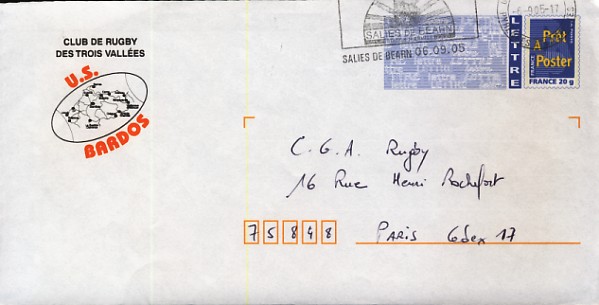 CLUB DE RUGBY
DES TROIS VALLÉES
U.S.
BARDOS
SALIES DE BEARN
SALIES DE BEARN 06.09.05
-6-9 05-17
LETTRE
Prêt
A
Poster
FRANCE 20 g
C.G.A. Rugby
16 Rue Henri Rochefort
75848 PARIS Cedex 17